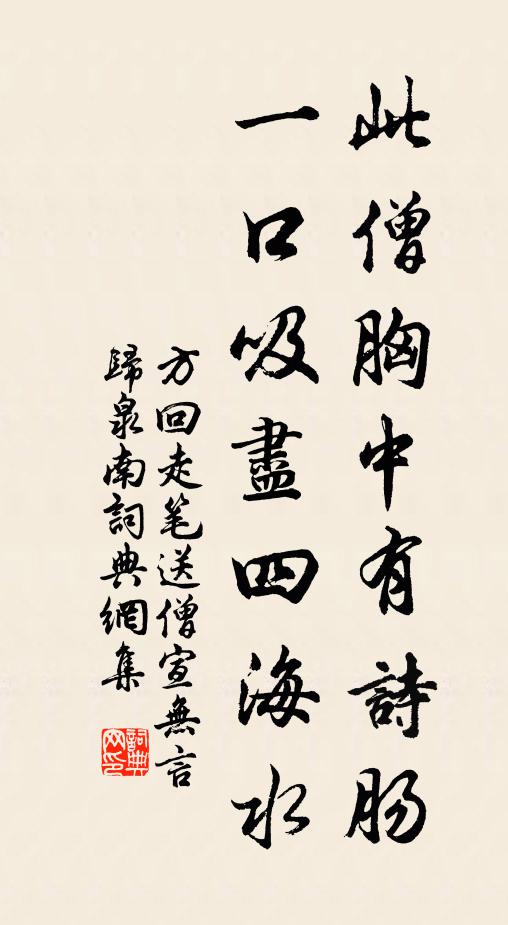 此僧胸中有詩肠
一口吸盡四海水
方回走笔送僧宣無言
歸泉南詞典網集
詞典
网印